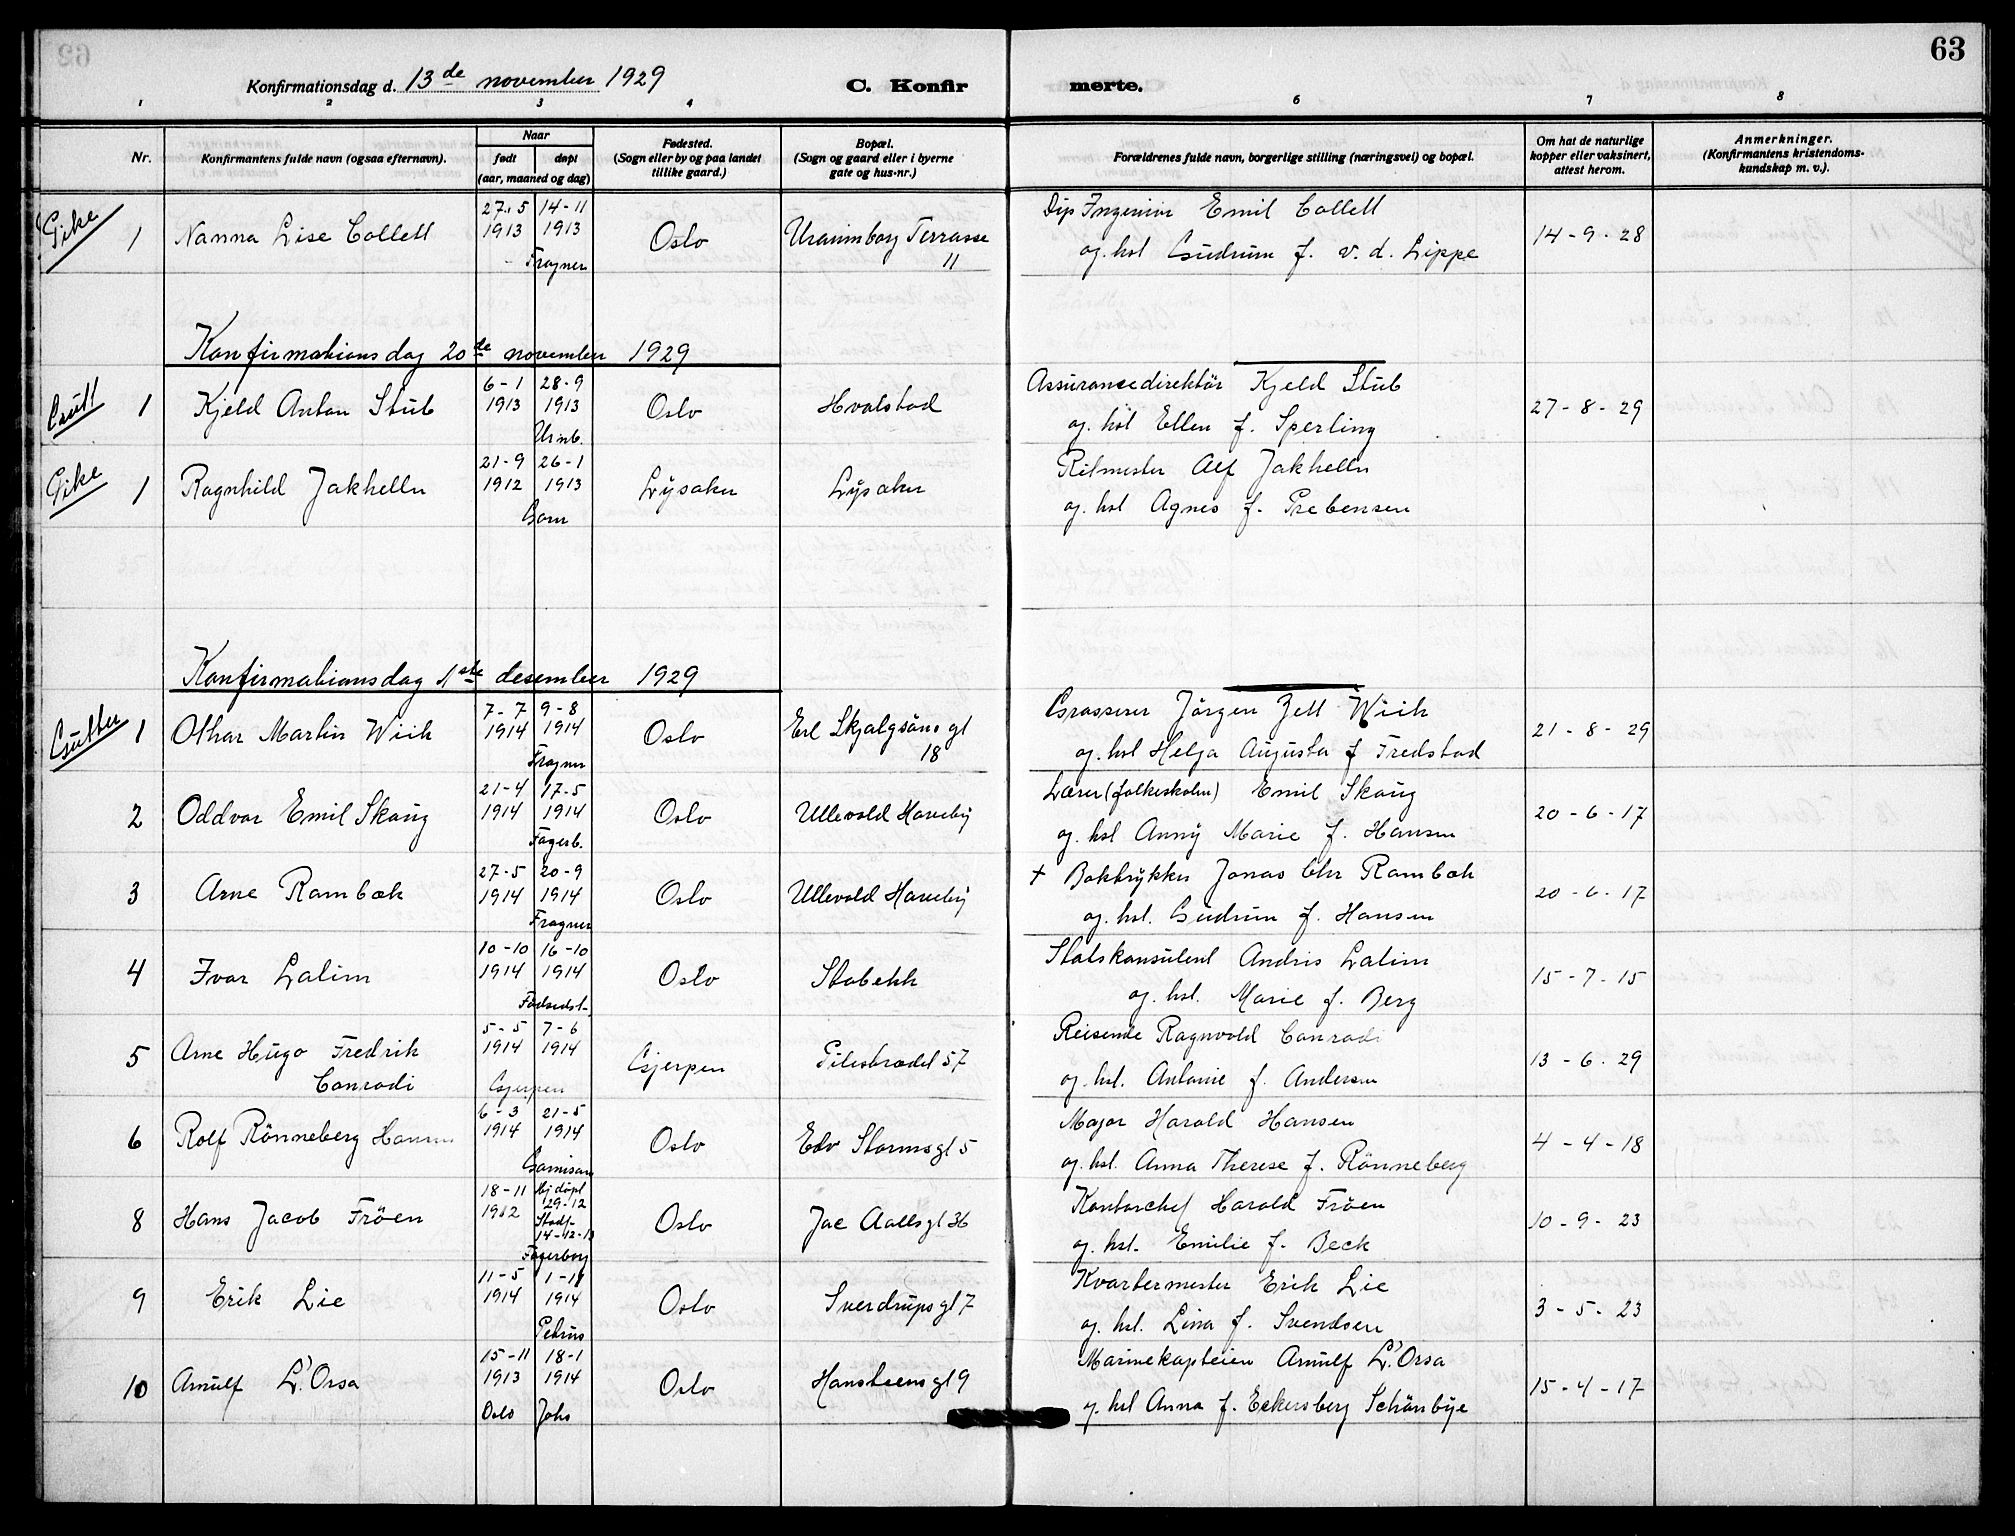 63
Konfirmationsdag d. 13de november 1929
C. Konfirmerte.
1 2 3 4 5 6 7 8
Nr.
Konfirmantens fulde navn (ogsaa efternavn).
Naar
født døpt
(aar, maaned og dag)
Fødested.
(Sogn eller by og paa landet
tillike gaard.)
Bopæl.
(Sogn og gaard eller i byerne
gate og hus-nr.)
Forældrenes fulde navn, borgerlige stilling (næringsvei) og bopæl.
Om hat de naturlige
kopper eller vaksinert,
attest herom.
Anmerkninger.
(Konfirmantens kristendoms-
kundskap m. v.).
Pike 1 Nanna Lise Collett 27-5 1913 14-11 1913 Frogner Oslo Uranienborg Terrasse 11 Dip Ingeniør Emil Collett
og. hst Gudrun f. v. d. Lippe 14-9-28
Konfirmationsdag 20de november 1929
Gutt 1 Kjeld Anton Stub 6-1 1913 28-9 1913 Urnb. Oslo Hvalstad Assurancedirektör Kjeld Stub
og. hst Ellen f. Sperling 27-8-29
Pike 1 Ragnhild Jakhelln 21-9 1912 26-1 1913 Garn Lysaker Lysaker Ritmester Alf Jakhelln
og. hst Agnes f. Prebensen
Konfirmationsdag 1ste desember 1929
Gutter 1 Othar Martin Wiik 7-7 1914 9-8 1914 Frogner Oslo Erl Skjalgsöns gt 18 Grosserer Jörgen Zett Wiik
og. hst Helga Augusta f Fredstad 21-8-29
2 Oddvar Emil Skaug 21-4 1914 17-5 1914 Fagerb. Oslo Ullevold Haveby Lærer (folkeskolen) Emil Skaug
og hst Anny Marie f. Hansen 20-6-17
3 Arne Rambæk 27-5 1914 20-9 1914 Frogner Oslo Ullevold Haveby + Boktrykker Jonas Chr Rambæk
og. hst. Gudrun f. Hansen 20-6-17
4 Ivar Lalim 10-10 1914 16-10 1914 Födselsst. Oslo Stabekk Statskonsulent Andris Lalim
og. hst. Marie f. Berg 15-7-15
5 Arne Hugo Fredrik
Conradi 5-5 1914 7-6 1914 Gjerpen Gjerpen Pilestrædet 57 Reisende Ragnvald Conradi
og. hst. Antonie f. Andersen 13-6-29
6 Rolf Rönneberg Hansen 6-3 1914 21-5 1914 Garnison Oslo Edv Stormsgt 5 Major Harald Hansen
og. hst. Anna Therese f. Rönneberg 4-4-18
8 Hans Jacob Fröen 18-11 1912 Hj döpt 29-12 Stadf. 14-12-13 Fagerborg Oslo Jac Aallsgt 36 Kontorchef Harald Fröen
og. hst. Emilie f. Beck 10-9-23
9 Erik Lie 11-5 1914 1-11 1914 Petrus Oslo Sverdrupsgt 7 Kvartermester Erik Lie
og. hst. Lina f. Svendsen 3-5-23
10 Arnulf L'Orsa 15-11 1913 18-1 1914 Oslo Johs Oslo Hansteensgt 9 Marinekaptein Arnulf L'Orsa
og. hst Anna f. Eckersberg Schönbye 15-4-17